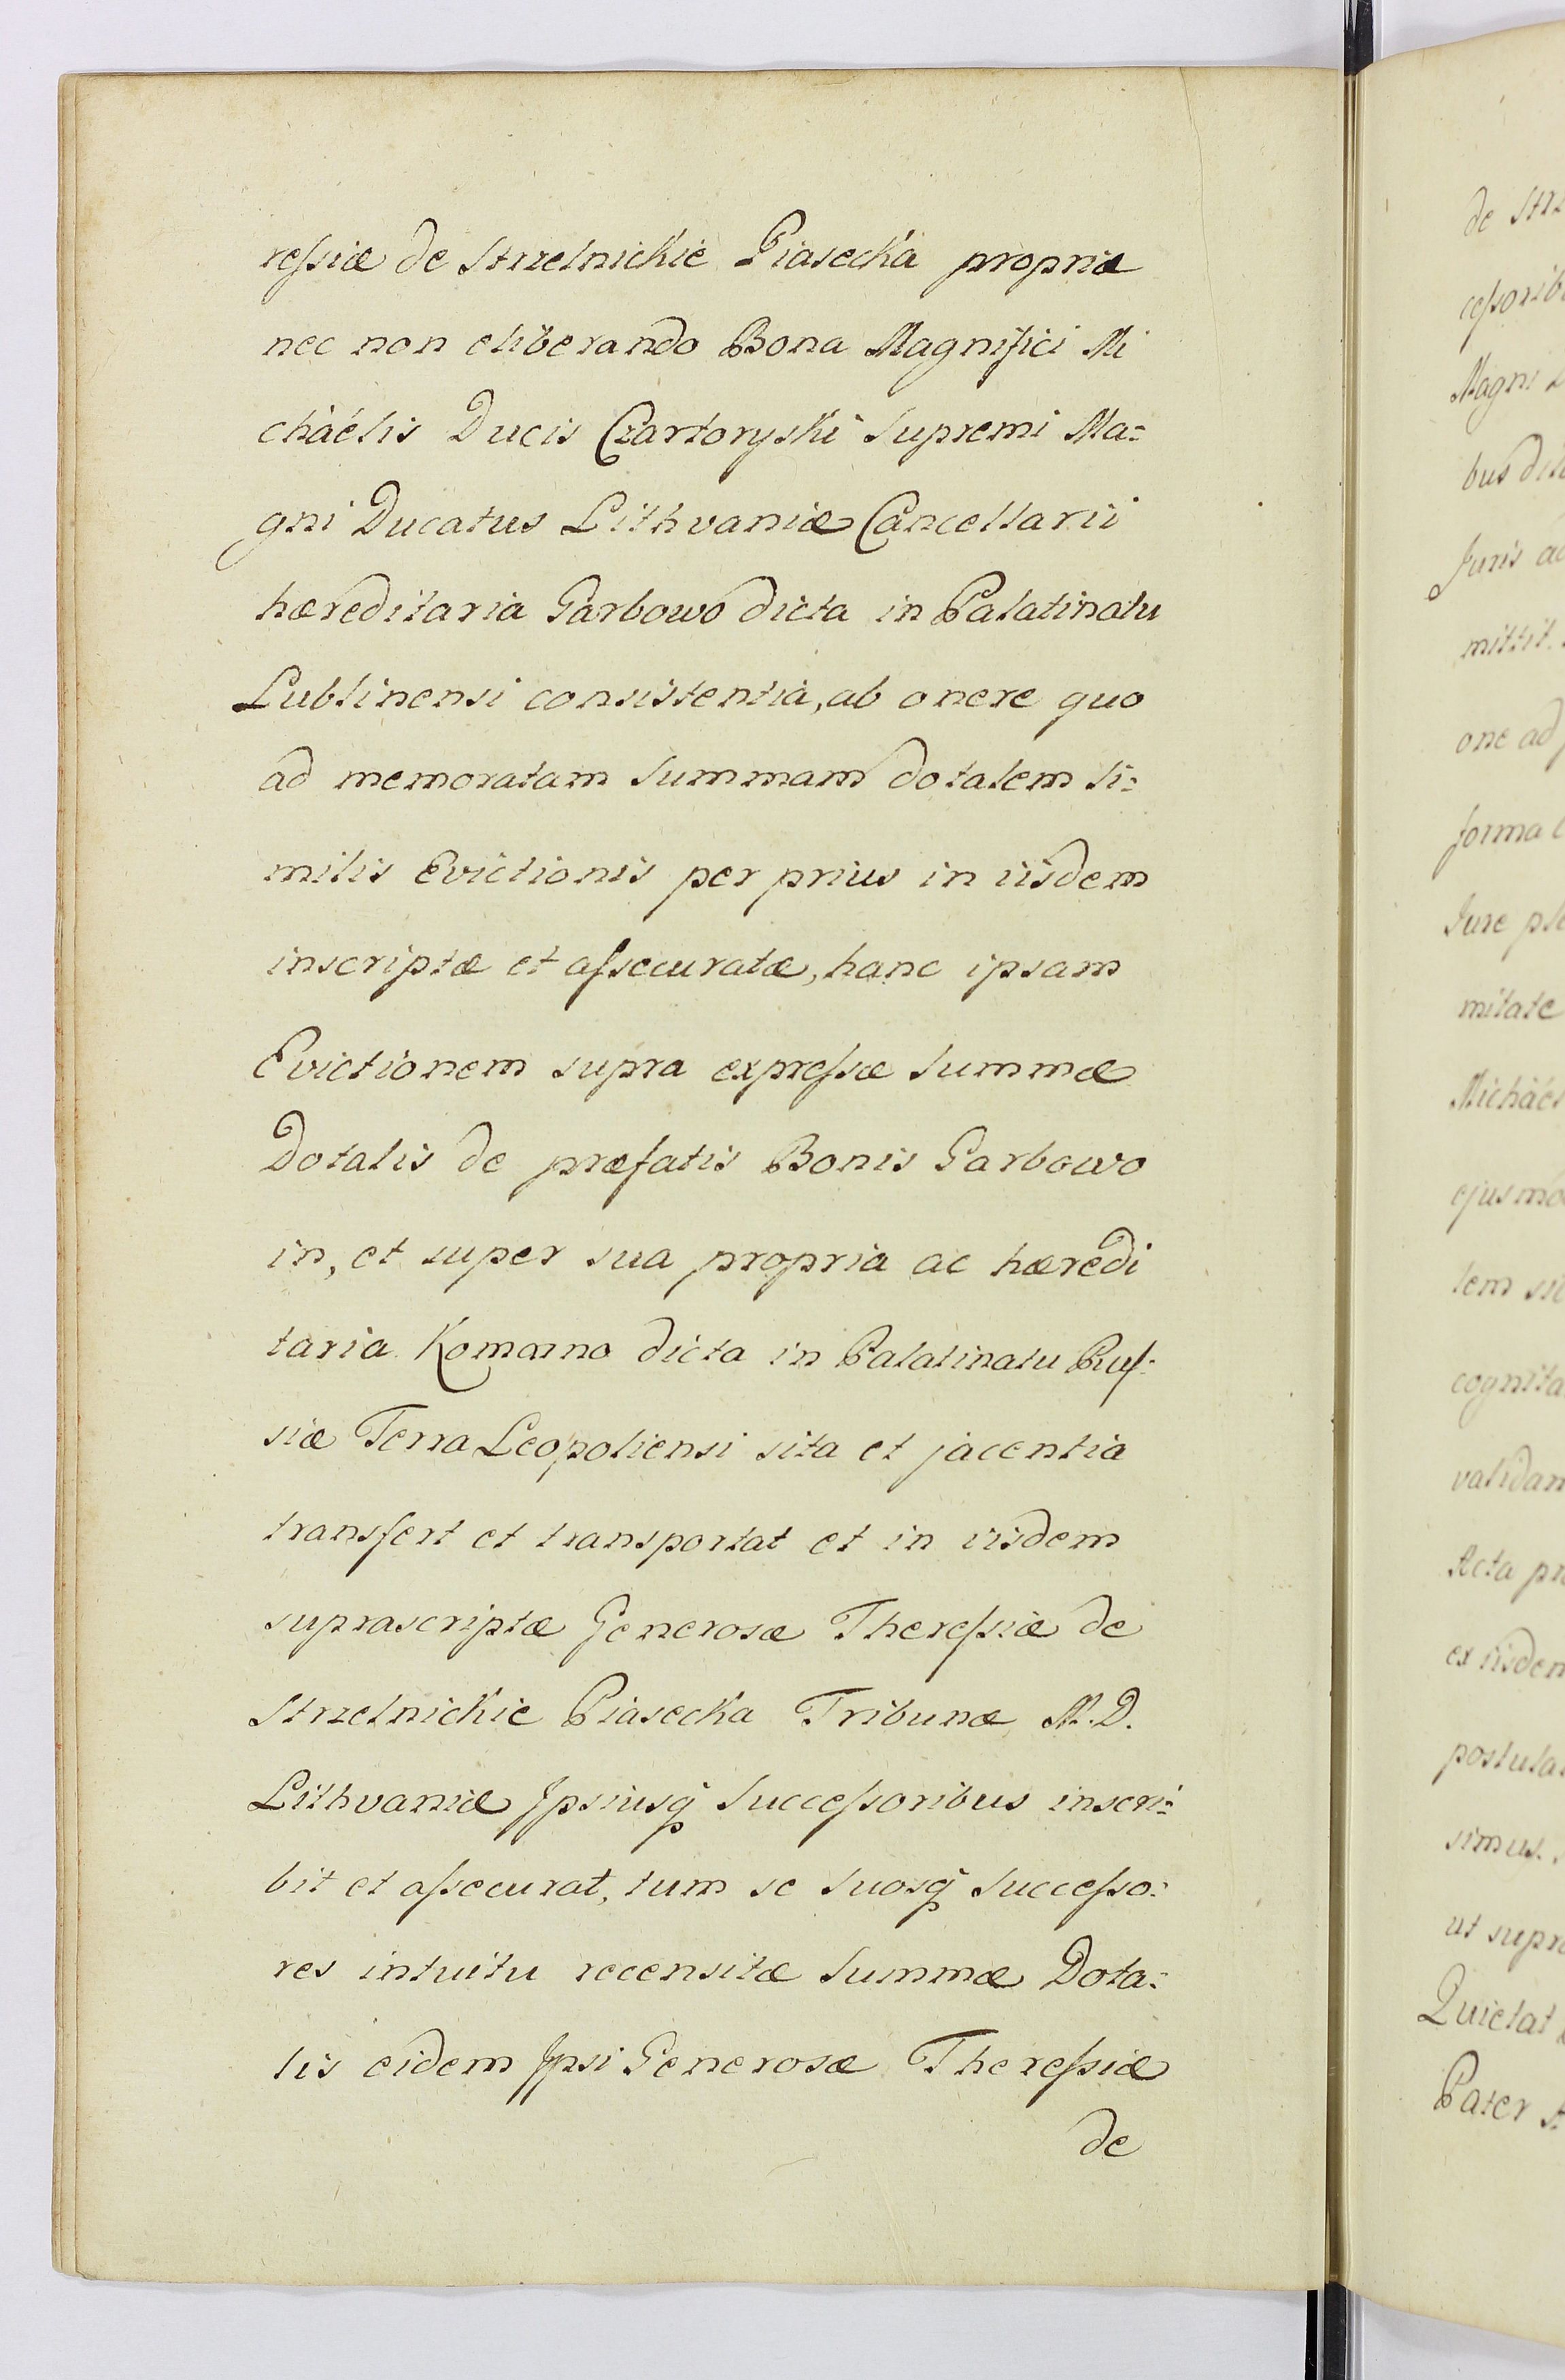 ressiæ de Strzelnickie Piasecka propriæ
nec non eliberando Bona Magnifici Mi
chäelis Ducis Czartoryski Supremi Ma=
gni Ducatus Lithvaniæ Cancellarii
hæreditaria Garbowo dicta in Palatinatu
Lublinensi consistentia, ab onere quo
ad memoratam Summam dotalem si=
milis Evictionis per prius in iisdem
inscriptæ et assecuratæ, hanc ipsam
Evictionem supra expressæ Summæ
Dotalis de præfatis Bonis Garbowo
in, et super sua propria ac hæredi
taria Komarno dicta in Palatinatu Rus=
siæ Terra Leopoliensi sita et jacentia
transfert et transportat et in iisdem
suprascriptæ Generosæ Theressiæ de
Strzelnickie Piasecka Tribunæ M. D.
Lithvaniæ Ipsiusq Successoribus inscri=
bit et assecurat, tum se Suosq Successo=
res intuitu recensitæ Summæ Dota=
lis eidem Ipsi Generosæ Theressiæ
de
de Strz
cessorib
Magni
bus
Juris ac
mittit.
one ad
forma
Iure ple
mitate
Michäel
ejusmo
tem
cognita
validam
Acta pr
ex iisdem
postula
simus.
ut supra
Quietat
Pater